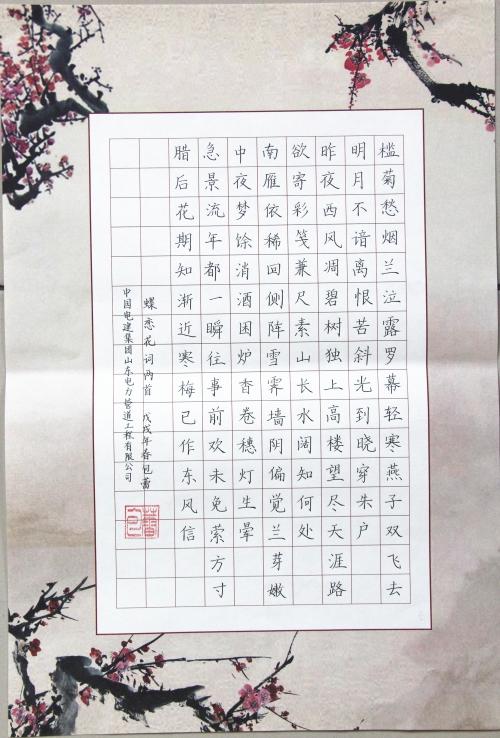 槛菊愁烟兰泣露罗幕轻寒燕子双飞去
明月不谙离恨苦斜光到晓穿朱户
昨夜西风凋碧树独上高楼望尽天涯路
欲寄彩笺兼尺素山长水阔知何处
南雁依稀回侧阵雪霁墙阴偏觉兰芽嫩
中夜梦馀消酒困炉香卷穗灯生晕
急景流年都一瞬往事前欢未免萦方寸
腊后花期知渐近寒梅已作东风信
蝶恋花词两首 戊戌年春包蕾
中国电建集团山东电力管道工程有限公司